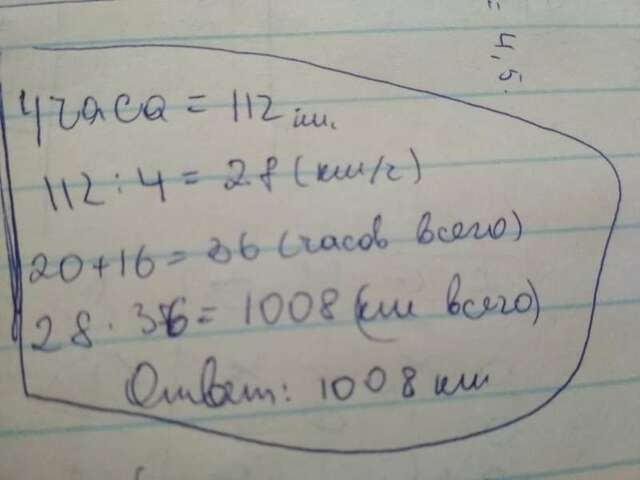 = 4,5.
4 часа = 112 км.
112 : 4 = 28 (км/ч)
20 + 16 = 36 (часов всего)
28 · 36 = 1008 (км всего)
Ответ: 1008 км